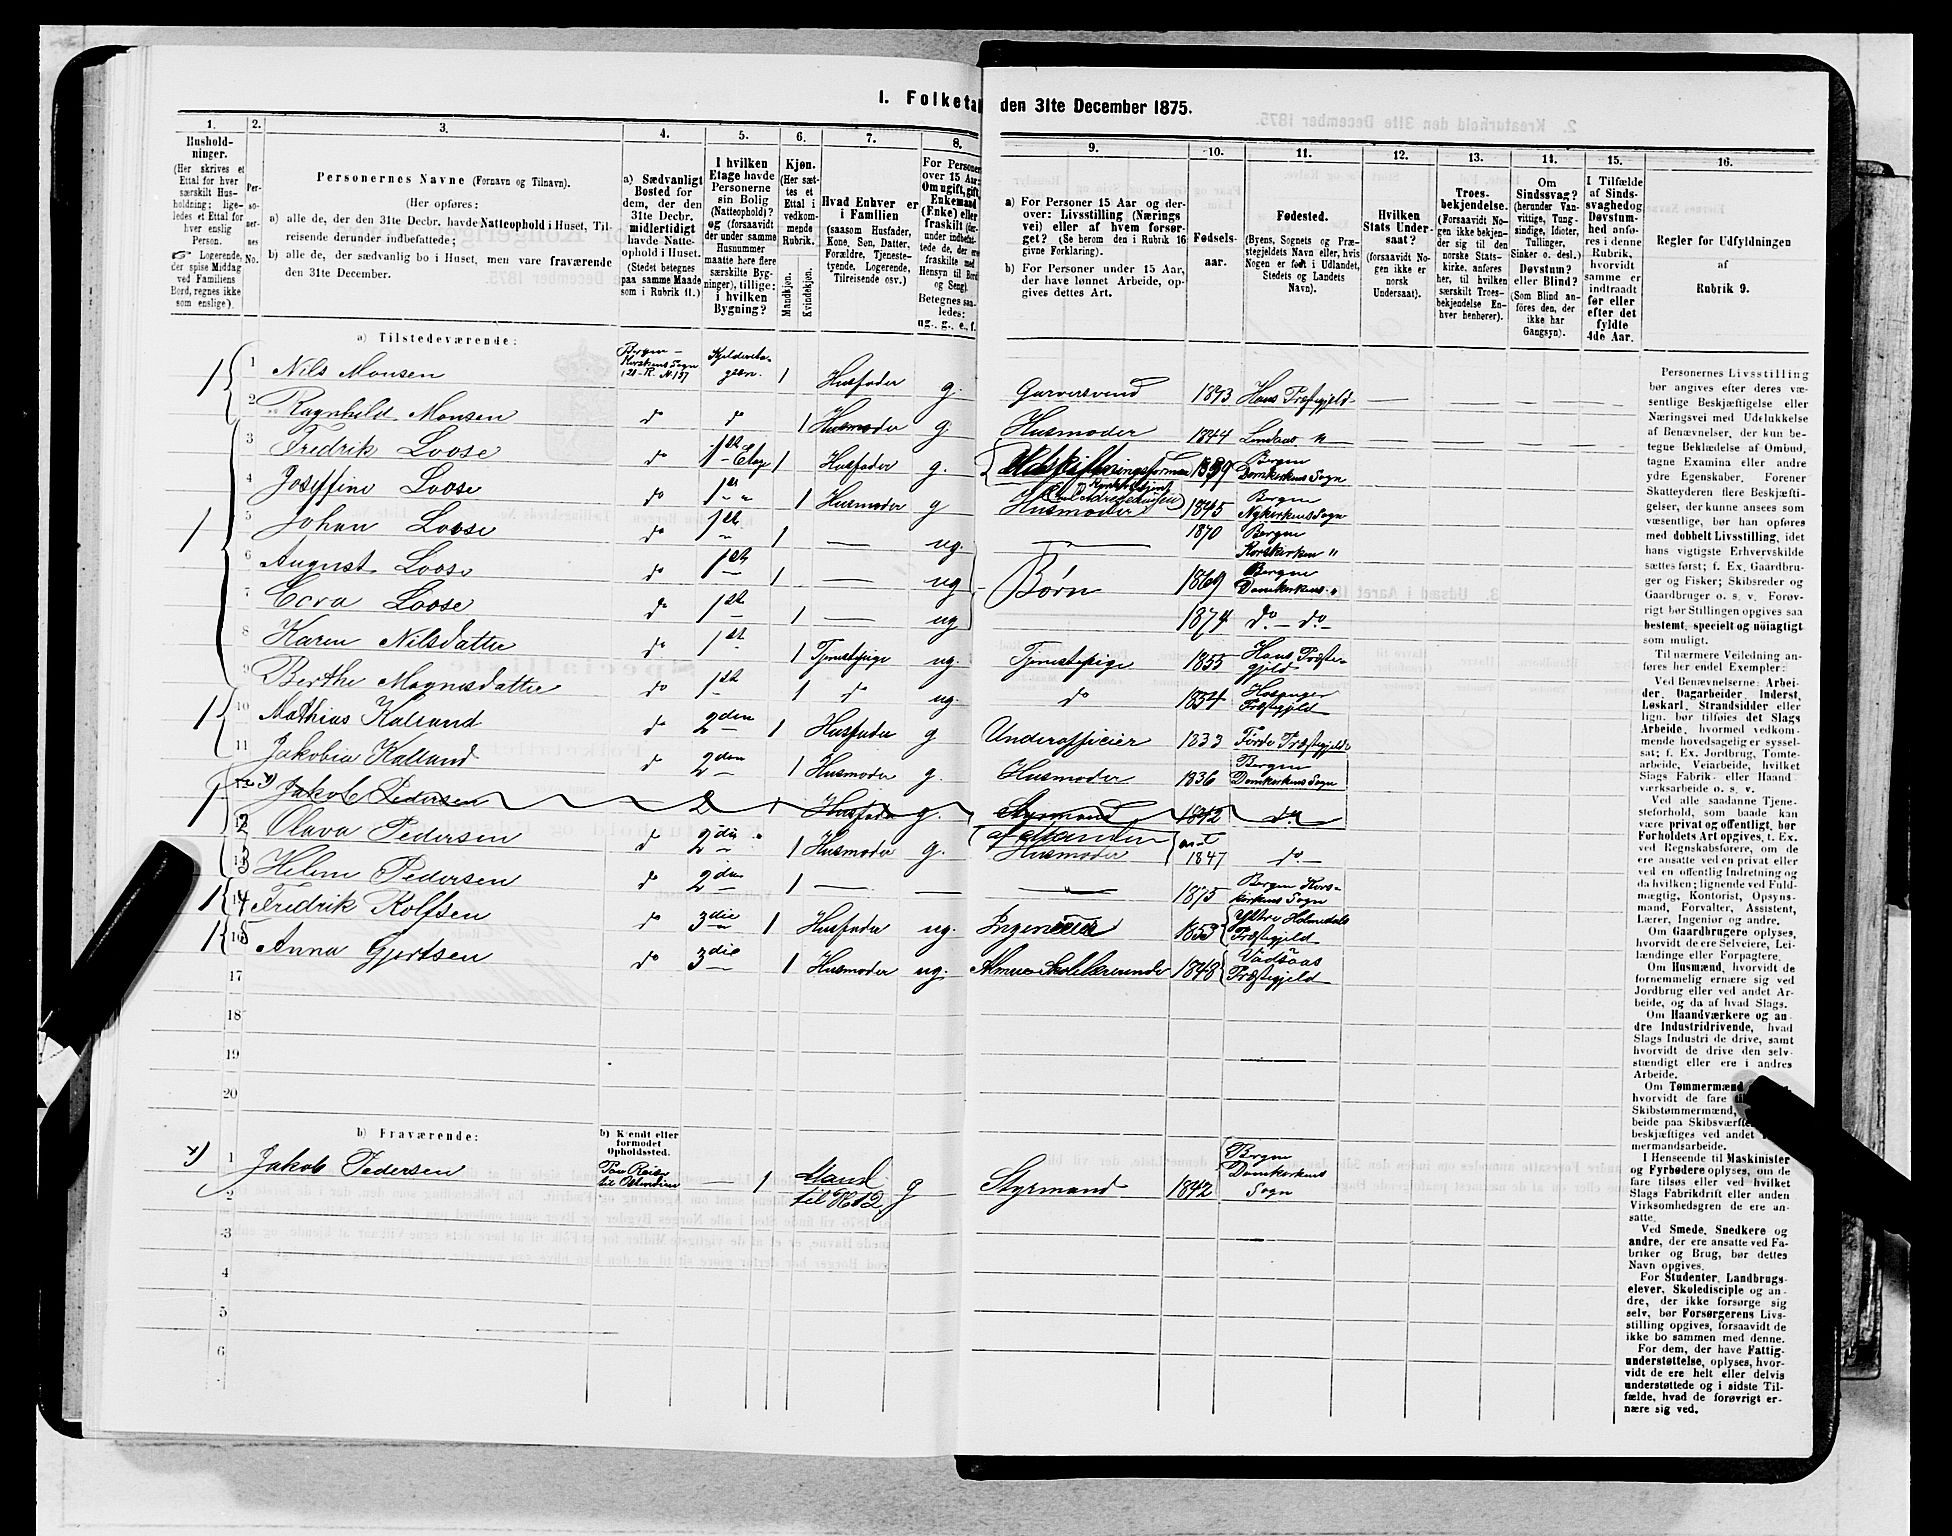 I. Folketal den 31te December 1875.
1. 2. 3. 4. 5. 6. 7. 8. 9. 10. 11. 12. 13. 14. 15. 16.
Husholdninger.
(Her skrives et
Ettal for hver
særskilt Husholdning; ligeledes
et Ettal for
hver enslig
Person.
☞ Logerende,
der spise Middag
ved Familiens
Bord, regnes ikke
som enslige).
Personernes No.
Personernes Navne (Fornavn og Tilnavn).
(Her opføres:
a) alle de, der den 31te Decbr. havde Natteophold i Huset, Tilreisende derunder indbefattede;
b) alle de, der sædvanlig bo i Huset, men vare fraværende
den 31te December.
a) Sædvanligt
Bosted for
dem, der den
31te Decbr.
midlertidigt
havde Natteophold
i Huset.
(Stedet betegnes
paa samme Maade
som i Rubrik 11.)
I hvilken
Etage havde
Personerne
sin Bolig
(Natteophold)?
og (forsaavidt
der under samme
Husnummer
maatte høre flere
særskilte Bygninger),
tillige:
i hvilken
Bygning?
Kjøn.
(Her sættes
et
Ettal i
vedkommende
Rubrik.
Mandkjøn.
Kvindekjøn.
Hvad Enhver er
i Familien
(saasom Husfader,
Kone, Søn, Datter,
Forældre, Tjenestetyende,
Logerende,
Tilreisende osv.)
For Personer
over 15 Aar:
Om ugift, gift,
Enkemand
(Enke) eller
fraskilt
og Seng).
Betegnes saaledes:
ug., g., e., f.
a) For Personer 15 Aar og derover:
Livsstilling (Næringsvei)
eller af hvem forsørget?
(Se herom den i Rubrik 16
givne Forklaring).
b) For Personer under 15 Aar,
der have lønnet Arbeide, opgives
dettes Art.
Fødselsaar.
Fødested.
(Byens, Sognets og Præstegjeldets
Navn eller, hvis
Nogen er født i Udlandet,
Stedets og Landets
Navn).
Hvilken
Stats Undersaat?
(forsaavidt Nogen
ikke er
norsk
Undersaat).
Troesbekjendelse.
(Forsaavidt Nogen
ikke bekjender
sig til den
norske Statskirke,
anføres
her, til hvilken
særskilt Troesbekjendelse
Enhver
henhører).
Om
Sindssvag?
(herunder Vanvittige,
Tungsindige,
Idioter,
Tullinger,
Sinker o. desl.)
Døvstum?
eller Blind?
(Som Blind anføres
den, der
ikke har
Gangsyn).
I Tilfælde
af Sindssvaghed
og
Døvstumhed
anføres
i denne
Rubrik,
hvorvidt
samme er
indtraadt
før eller
efter det
fyldte
4de Aar.
Regler for Udfyldningen
af
Rubrik 9.
a) Tilstedeværende:
1 Nils Monsen Bergen – Korskirkens Sogn 12-R. N. 137 Kjelderetagen. 1 Husfader g. Garversvend 1843 Haus Præstegjeld
2 Ragnhild Monsen do do 1 Husmoder g. Husmoder 1844
3 Fredrik Loose do 1ste Etage 1 Husfader g. 1839 Bergen Domkirkens Sogn
4 Josefine Loose do 1ste 1 Husmoder g Husmoder 1845 Bergen Nykirkens Sogn
5 Johan Loose do 1ste 1 — ug. 1870 Bergen Korskirken "
6 August Loose do 1ste 1 — ug Børn 1869 Bergen Domkirkens "
7 Loose do 1ste 1 — ug 1874 do – do –
8 Karen Nilsdatter do 1ste 1 Tjenestepige ug. Tjenestepige 1855 Haus Præstegjeld
9 Berthe Magnesdatter do 1ste 1 do ug. do 1854 Hosanger Præstegjeld
10 Mathias Kalland do 2den 1 Husfader g Underofficier 1833 Førde Præstegjeld
11 Jakobia Kalland do 2den 1 Husmoder g. Husmoder 1836 Bergen Domkirkens Sogn
x) Jakob Pedersen 2 1 Husfader g. Styrmand 1842 do
12 Olava Pedersen do 2den 1 Husmoder g. Husmoder 1847 do –
13 Helene Pedersen do 2den 1 — — — 1875 Bergen Korskirkens Sogn
14 Fredrik Rolfsen do 3die 1 Husfader ug. Ingeniør 1853 Ytre Holmedals Præstegjeld
15 Anna Gjertsen do 3die 1 Husmoder ug. Almueskolelærerinde 1848 Vadsöes Præstegjeld
17
18
19
20
b) Fraværende:
b) Kjendt eller
formodet
Opholdssted.
x) 1 Jakob Pedersen Paa Reise til Ostindien — 1 Mand til N 12 g Styrmand 1842 Bergen Domkirkens Sogn
2
3
4
5
6
Personernes Livsstilling
bør angives efter deres væsentlige
Beskjæftigelse eller
Næringsvei med Udelukkelse
af Benævnelser, der kun betegne
Beklædelse af Ombud,
tagne Examina eller andre
ydre Egenskaber. Forener
Skatteyderen flere Beskjæftigelser,
der kunne ansees som
væsentlige, bør han opføres
med dobbelt Livsstilling, idet
hans vigtigste Erhvervskilde
sættes først; f. Ex. Gaardbruger
og Fisker; Skibsreder og
Gaardbruger o. s. v. Forøvrigt
bør Stillingen opgives saa
bestemt, specielt og nöiagtigt
som muligt.
Til nærmere Veiledning anføres
her endel Exempler:
Ved Benævnelserne: Arbeider,
Dagarbeider, Inderst,
Løskarl, Strandsidder eller
lign. bør tilføies det Slags
Arbeide, hvormed vedkommende
hovedsagelig er sysselsat;
f. Ex. Jordbrug, Tomtearbeide,
Veiarbeide, hvilket
Slags Fabrik- eller Haandværksarbeide
o. s. v.
Ved alle saadanne Tjenesteforhold,
som baade kan
være privat og offentligt, bør
Forholdets Art opgives, t. Ex.
ved Regnskabsførere, om de
ere ansatte ved en privat eller
ved en offentlig Indretning og
da hvilken; lignende ved Fuldmægtig,
Kontorist, Opsynsmand,
Forvalter, Assistent,
Lærer, Ingeniør og andre.
Om Gaardbrugere oplyses,
hvorvidt de ere Selveiere, Leilændinge
eller Forpagtere.
Om Husmænd, hvorvidt de
fornemmelig ernære sig ved
Jordbrug eller ved andet Arbeide,
og da af hvad Slags.
Om Haandværkere og andre
Industridrivende, hvad
Slags Industri de drive, samt
hvorvidt de drive den selvstændigt
eller ere i andres
Arbeide.
Om Tømmermænd
hvorvidt de fare
Skibstømmermænd,
beide paa Skibsværft
beskjæftiges ved andet
mermandsarbeide.
I Henseende til Maskinister
og Fyrbødere oplyses, om de
fare tilsøs eller ved hvilket
Slags Fabrikdrift eller anden
Virksomhedsgren de ere ansatte.
Ved Smede, Snedkere og
andre, der ere ansatte ved Fabriker
og Brug, bør dettes
Navn opgives.
For Studenter, Landbrugselever,
Skoledisciple og andre,
der ikke forsørge sig
selv, bør Forsørgerens Livsstilling
opgives, forsaavidt de
ikke bo sammen med denne.
For dem, der have Fattigunderstøttelse,
oplyses, hvorvidt
de ere helt eller delvis
understøttede og i sidste Tilfælde,
hvad de forøvrigt ernære
sig ved.